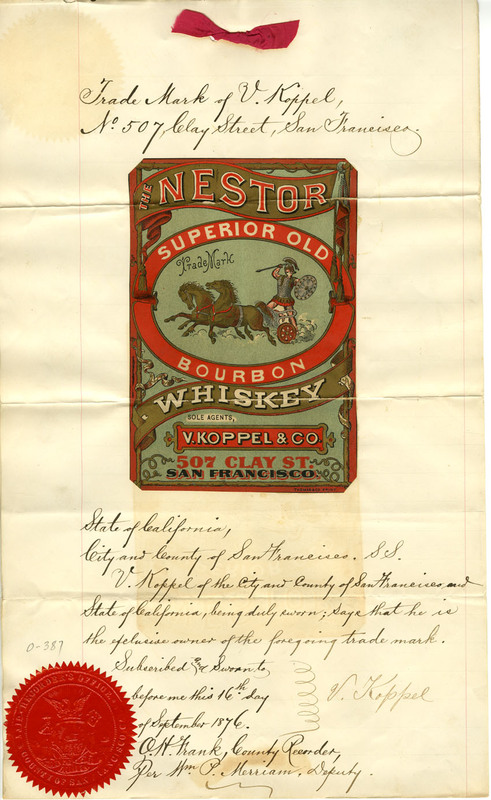 Trade Mark of V. Koppel,
No. 507, Clay Street, San Francisco.
THE NESTOR
SUPERIOR OLD
Trade Mark
BOURBON
WHISKEY
SOLE AGENTS,
V. KOPPEL & CO.
507 CLAY ST.
SAN FRANCISCO.
State of California,
City and County of San Francisco. S.S.
V. Koppel of the City and County of San Francisco, and
State of California, being duly sworn; says that he is
the exclusive owner of the foregoing trade mark.
0-387
Subscribed and Sworn to
before me this 16th day
of September 1876.
V. Koppel
O. H. Frank, County Recorder,
Per Wm P. Merriam, Deputy.